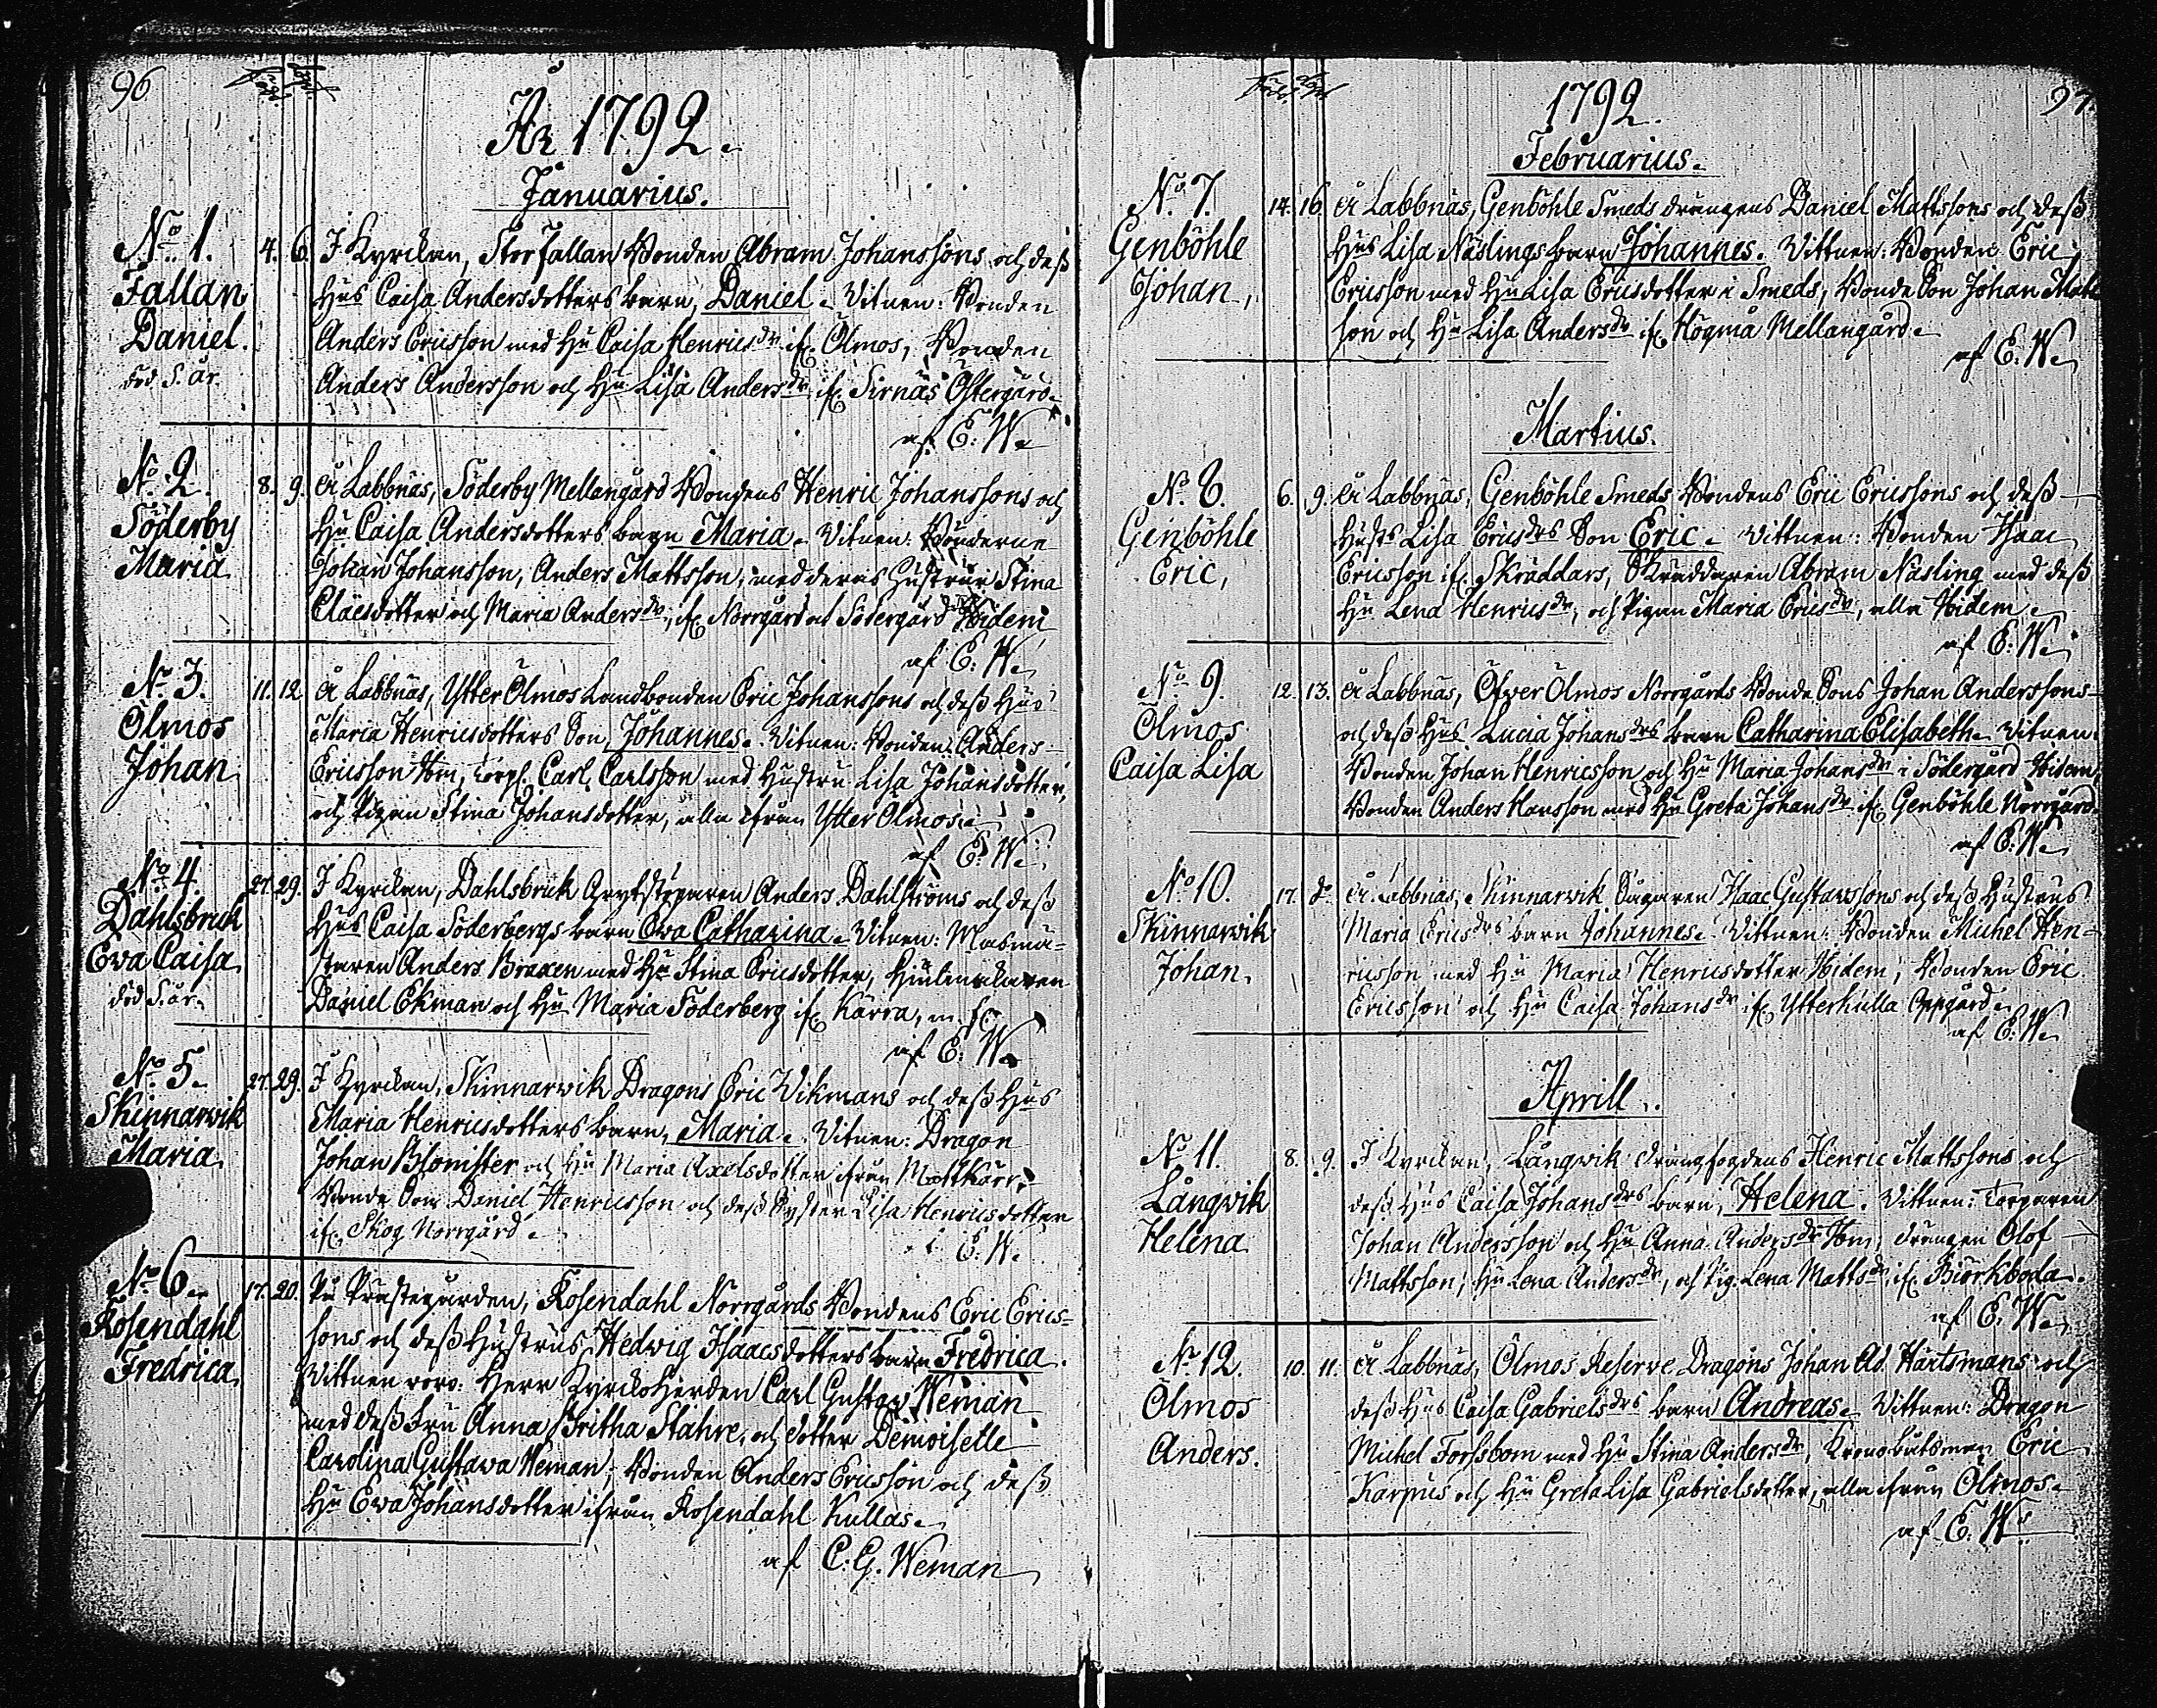 96
Födde döpt.
År 1792.
Januarius.
No 1.
Fallan
Daniel.
död s. år.
4. 6. I Kyrckan, Storfallan Bonden Abram Johanssons och dess
Hus Caisa Andersdotters barn, Daniel. Vitnen: Bonden
Anders Ericsson med Hu Caisa Henricsdr if. Ölmos, Bonden
Anders Andersson och Hu Lisa Andersdr if. Sirnäs Östergård.
af E. W.
No 2.
Söderby
Maria
8. 9. Å Labbnäs, Söderby Mellangård Bondens Henric Johanssons och
Hu Caisa Andersdotters barn Maria. Vitnen: Bönderne
Johan Johansson, Anders Mattsson, med deras Hustrur Stina
Claësdotter och Maria Andersdr, if. Norrgård och Södergård Ibidem
af E. W.
No 3.
Ölmos
Johan
11. 12 Å Labbnäs, Ytter Ölmos Landbonden Eric Johanssons och dess Hus
Maria Henricsdotters Son, Johannes. Vitnen: Bonden Anders
Ericsson Ibm, Corpl. Carl Carlsson med Hustru Lisa Johansdotter,
och Pigan Stina Johansdotter, alla ifrån Ytter Ölmos.
af E. W.
No 4.
Dahlsbruk
Eva Caisa
död s. år.
27. 29. I Kyrckan, Dahlsbruk Grytstöparen Anders Dahlströms och dess
Hus Caisa Söderbergs barn Eva Catharina. Vitnen: Masmä-
staren Anders Braxen med Hu Stina Ericsdotter, Hiulmakaren
Daniel Ekman och Hu Maria Söderberg if. Kärra, m. fl.
af E. W.
No 5.
Skinnarvik
Maria
27. 29. I Kyrckan, Skinnarvik Dragons Eric Vikmans och dess Hus
Maria Henricsdotters barn, Maria. Vitnen: Dragon
Johan Blomster och Hu Maria Axelsdotter ifrån Mattkärr,
Bonde Son Daniel Henricsson och dess Syster Lisa Henricsdotter
if. Skog Norrgård.
E. W.
No 6.
Rosendahl
Fredrica
17. 20. På Prästegården, Rosendahl Norrgårds Bondens Eric Erics-
sons och dess Hustrus Hedwig Isaacsdotters barn Fredrica.
Vittnen voro: Herr Kyrckoherden Carl Gustav Weman
med dess Fru Anna Britha Stahre, och dotter Demoiselle
Carolina Gustava Weman, Bonden Anders Ericsson och dess
Hu Eva Johansdotter ifrån Rosendahl Kullas.
af C. G. Weman
97.
1792.
Februarius.
No 7.
Genböhle
Johan,
14. 16 Å Labbnäs, Genböhle Smeds drängens Daniel Mattssons och dess
Hus Lisa Näslings barn Johannes. Vittnen: Bonden Eric
Ericsson med Hu Lisa Ericsdotter i Smeds, Bonde Son Johan Mats
son och Hu Lisa Andersdr if. Högmå Mellangård.
af E. W.
Martius.
No 8.
Genböhle
Eric,
6. 9. Å Labbnäs, Genböhle Smeds Bondens Eric Ericssons och dess
Husts Lisa Ericsdrs Son Eric. Vittnen: Bonden Isaac
Ericsson if. Skräddars, Skräddaren Abram Näsling med dess
Hu Lena Henricsdr, och Pigan Maria Ericsdr, alla Ibidem.
af E. W.
No 9.
Ölmos
Caisa Lisa
12. 13. Å Labbnäs, Öfver Ölmos Norrgårds Bonde Sons Johan Anderssons
och dess Hus Lucia Johansdrs barn Catharina Elisabeth. Vitnen
Bonden Johan Henricsson och Hu Maria Johansdr i Södergård Ibidem,
Bonden Anders Hansson med Hu Greta Johansdr if. Genböhle Norrgård.
af E. W.
No 10.
Skinnarvik
Johan.
17. do Å Labbnäs, Skinnarvik Sågaren Isaac Gustavssons och dess Hustrus
Maria Ericsdrs barn Johannes. Vittnen: Bonden Michel Hen-
ricsson med Hu Maria Henricsdotter Ibidem, Bonden Eric
Ericsson och Hu Caisa Johansdr if. Ytterkulla Oppgård.
af E. W.
Aprill.
No 11.
Långvik
Helena
8. 9. I Kyrckan, Långvik drängfogdens Henric Mattssons och
dess Hus Caisa Johansdrs barn, Helena. Vittnen: Torparen
Johan Andersson och Hu Anna Andersdr Ibm, drängen Olof
Mattsson, Hu Lena Andersdr, och Pig. Lena Mattsdr, if. Biörkboda.
af E. W.
No 12.
Ölmos
Anders.
10. 11. Å Labbnäs, Ölmos Reserve Dragons Johan Ad. Hartsmans och
dess Hus Caisa Gabrielsdrs barn Andreas. Vittnen: Dragon
Michel Forssbom med Hu Stina Andersdr, Kronobåtsman Eric
Karpus och Hu Greta Lisa Gabrielsdotter, alla ifrån Ölmos.
af E. W.